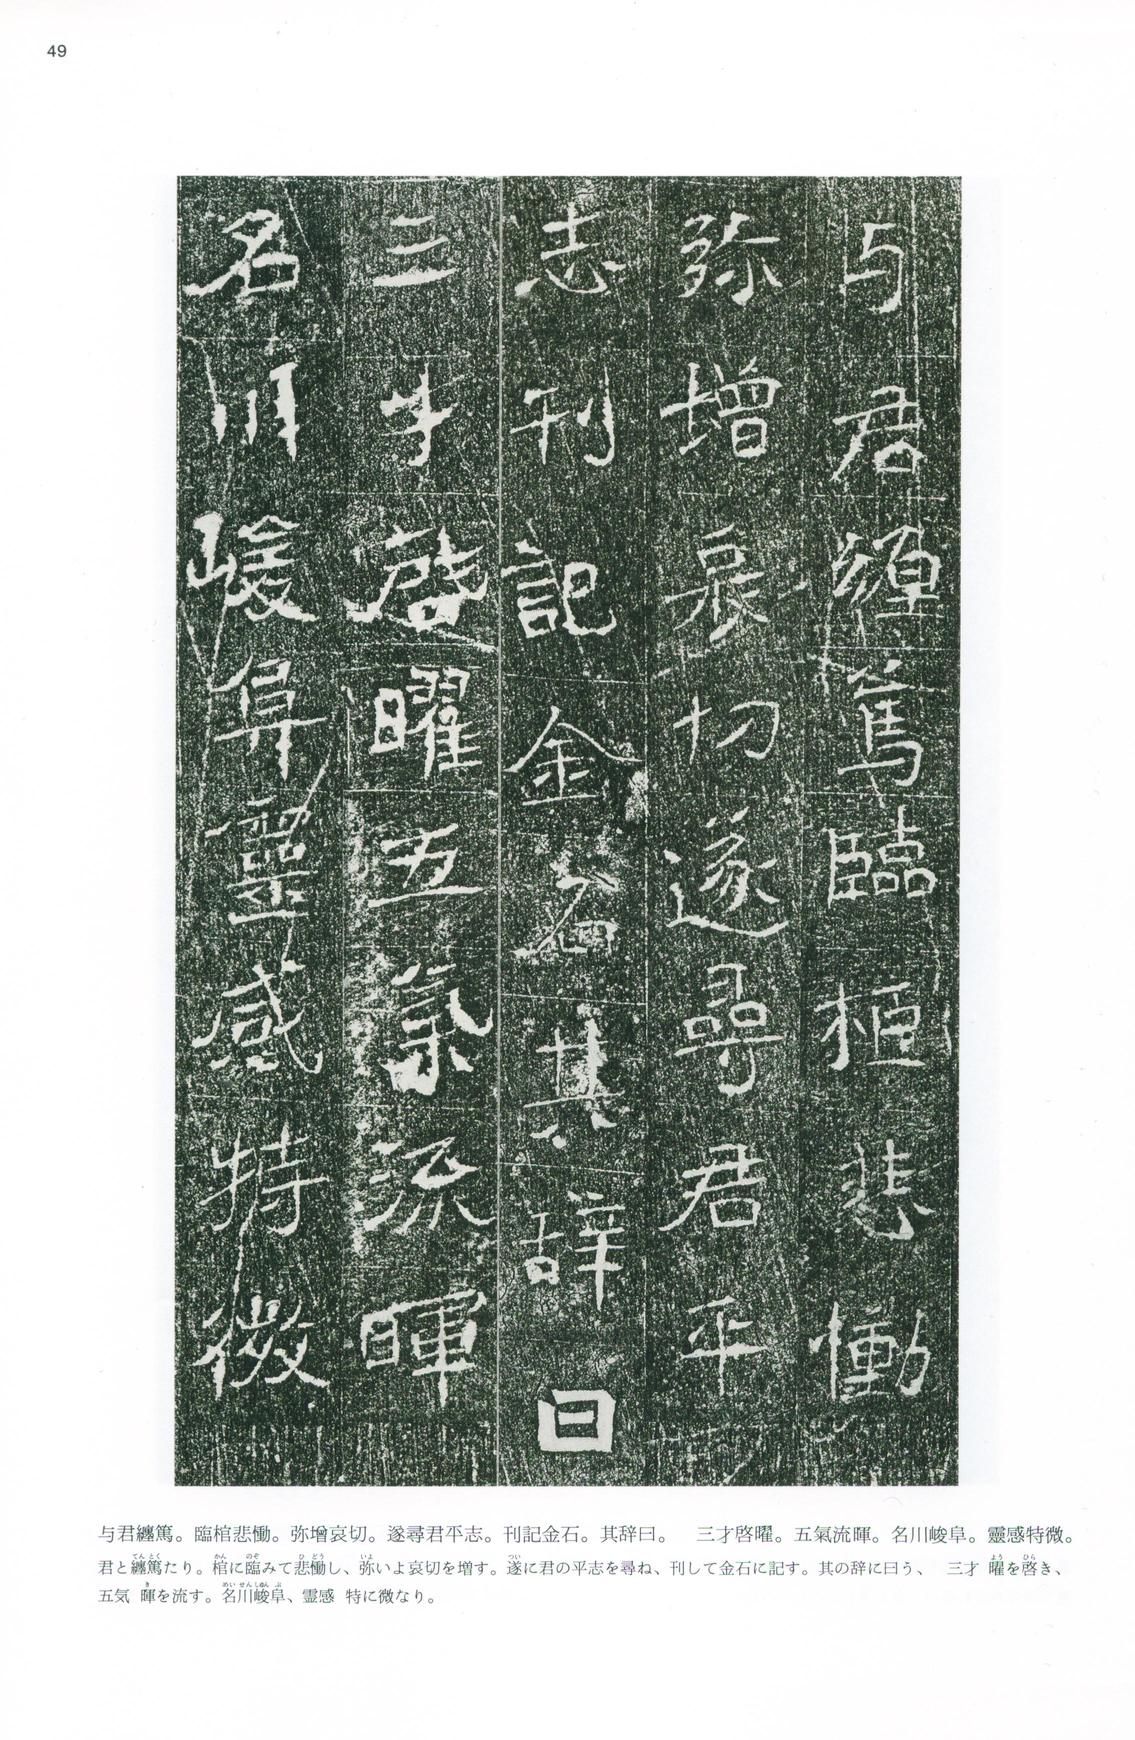 49
与君纏篤臨棺悲慟
弥增哀切遂尋君平
志刊記金石其辞曰
三才啓曜五氣流暉
名川峻阜靈感特微
与君纏篤。臨棺悲慟。弥增哀切。遂尋君平志。刊記金石。其辞曰。　三才啓曜。五氣流暉。名川峻阜。靈感特微。
てんとく　かん　のぞ　ひどう　いよ　つい　よう　ひら
君と纏篤たり。棺に臨みて悲慟し、弥いよ哀切を増す。遂に君の平志を尋ね、刊して金石に記す。其の辞に曰う、　三才 曜を啓き、
き　めいせんしゅんぷ
五気 暉を流す。名川峻阜、霊感 特に微なり。